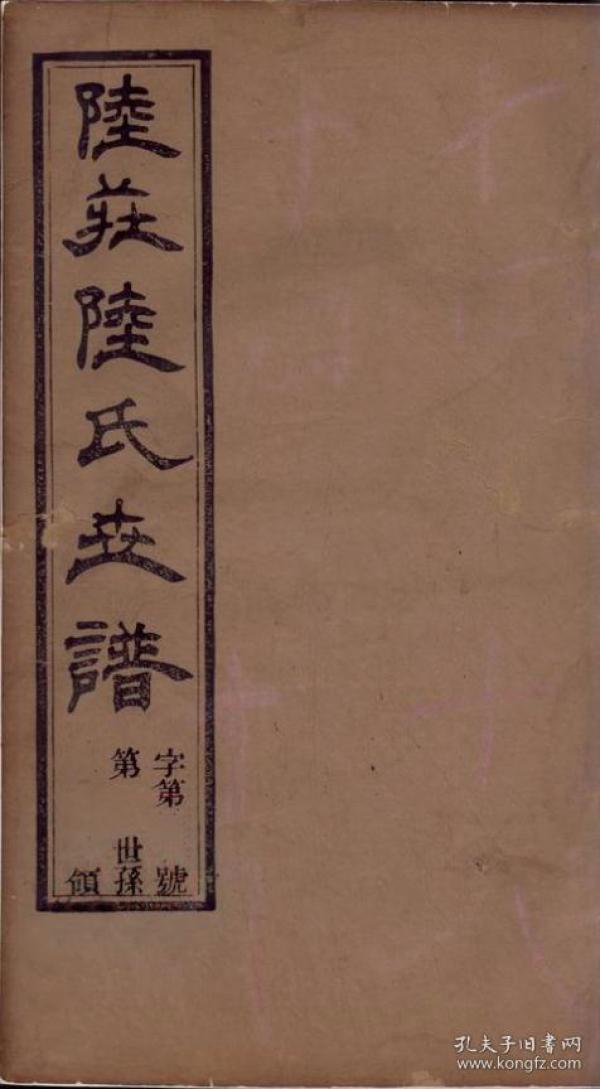 陸莊陸氏世譜
字第 號
第 世孫
領
孔夫子旧書网
www.kongfz.com